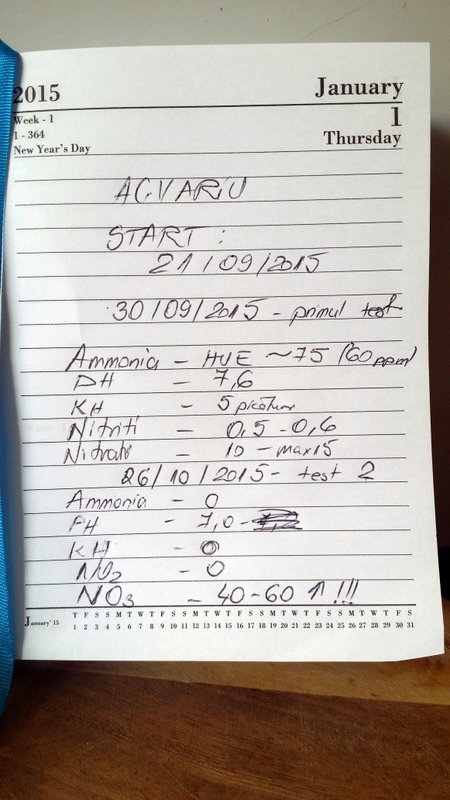 2015 January
Week - 1 1
1 - 364 Thursday
New Year's Day
ACVARIU
START :
21/09/2015
30/09/2015 - primul test
Ammonia - HUE ~75 (60 ppm)
PH - 7,6
KH - 5 picături
Nitriti - 0,5 - 0,6
Nitrati - 10 - max15
26/10/2015 - test 2
Ammonia - 0
PH - 7,0 -
KH - 0
NO2 - 0
NO3 - 40-60 ↑ !!!
T F S S M T W T F S S M T W T F S S M T W T F S S M T W T F S
January' 15 1 2 3 4 5 6 7 8 9 10 11 12 13 14 15 16 17 18 19 20 21 22 23 24 25 26 27 28 29 30 31